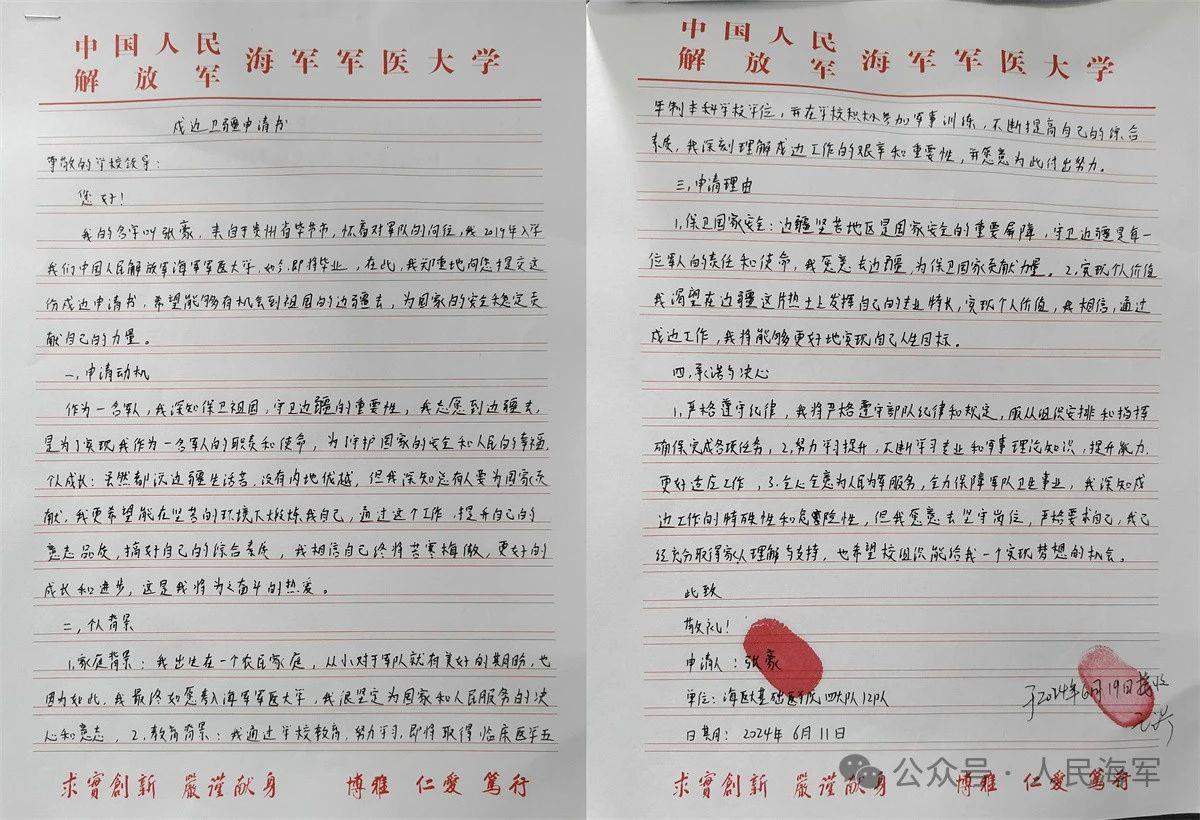 中国人民解放军 海军军医大学
戍边卫疆申请书
尊敬的学校领导：
您好！
我的名字叫张豪，来自于贵州省毕节市，怀着对军队的向往，我2019年入学
我们中国人民解放军海军军医大学，如今，即将毕业，在此，我郑重地向您提交这
份戍边申请书，希望能够有机会到祖国的边疆去，为国家的安全稳定贡
献自己的力量。
一，申请动机
作为一名军人，我深知保卫祖国，守卫边疆的重要性，我志愿到边疆去，
是为了实现我作为一名军人的职责和使命，为了守护国家的安全和人民的幸福，
个人成长：虽然都说边疆生活苦，没有内地优越，但我深知总有人要为国家贡
献，我更希望能在坚苦的环境下煅炼我自己，通过这个工作，提升自己的
意志品质，搞好自己的综合素质，我相信自己终将苦寒梅傲，更好的
成长和进步，这是我将为之奋斗的热爱。
二，个人背景
1.家庭背景：我出生在一个农民家庭，从小对于军队就有美好的期盼，也
因为如此，我最终如愿考入海军军医大学，我很坚定为国家和人民服务的决
心和意志，2.教育背景：我通过学校教育，努力学习，即将取得临床医学五
求實創新 嚴謹献身 博雅 仁愛 篤行
中国人民解放军 海军军医大学
年制本科学校学位，并在学校积极参加军事训练，不断提高自己的综合
素质，我深刻理解戍边工作的艰辛和重要性，并愿意为此付出努力。
三，申请理由
1.保卫国家安全：边疆坚苦地区是国家安全的重要屏障，守卫边疆是每一
位军人的责任和使命，我愿意去边疆，为保卫国家贡献力量。2.实现个人价值
我渴望在边疆这片热土上发挥自己的专业特长，实现个人价值，我相信，通过
戍边工作，我将能够更好地实现自己人生目标。
四，承诺与决心
1.严格遵守纪律，我将严格遵守部队纪律和规定，服从组织安排和指挥
确保完成各项任务，2.努力学习提升，不断学习专业和军事理论知识，提升能力，
更好适应工作，3.全心全意为人民为军服务，全力保障军队卫生事业，我深知戍
边工作的特殊性和危险性，但我愿意去坚守岗位，严格要求自己，我已
经充分取得家人理解与支持，也希望校组织能给我一个实现梦想的机会。
此致
敬礼！
申请人：张豪
单位：海医大基础医学院四大队12队
于2024年6月19日接收
日期：2024年6月11日
求實創新 嚴謹献身 博雅 仁愛 篤行
公众号·人民海军